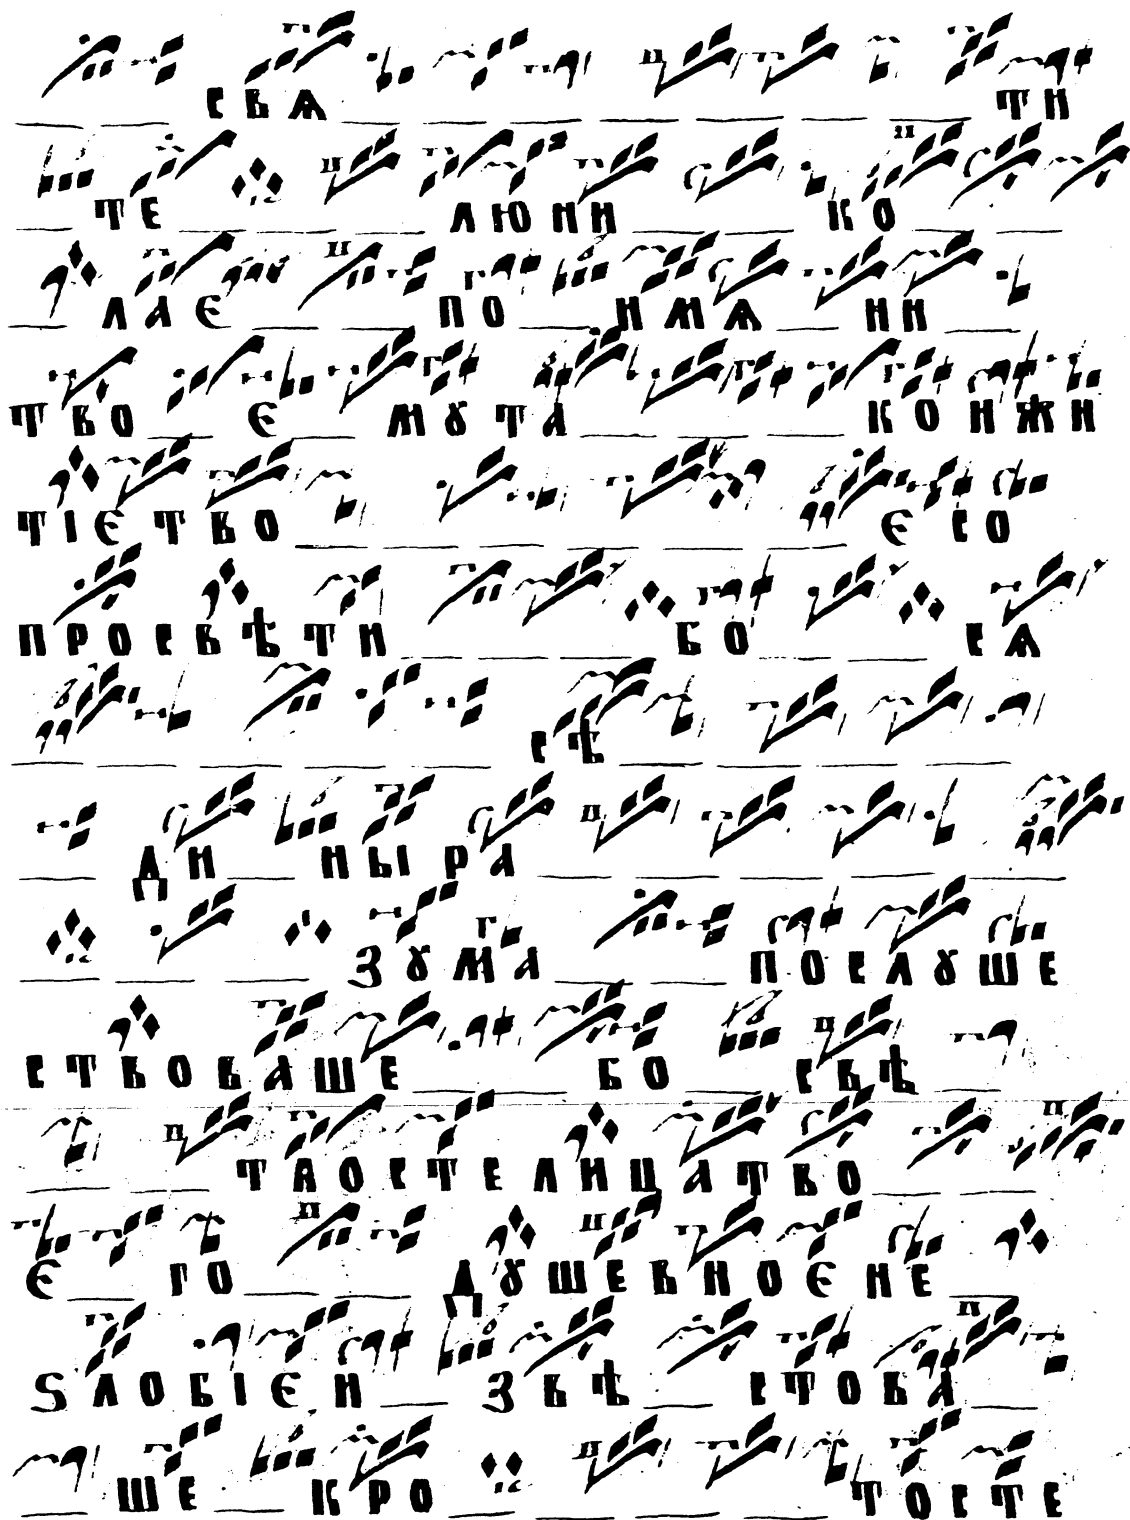 свѧ ти
те люни ко
лае по имѧ ни
тво є мꙋта кон жи
тїє тво є со
просвѣти бо сѧ
сѣ
ди ны ра
зꙋма послꙋше
ствоваше бо свѣ
таостелицатво
є го дꙋшевноє не
ѕлобїє и звѣ стова
ше кро тосте